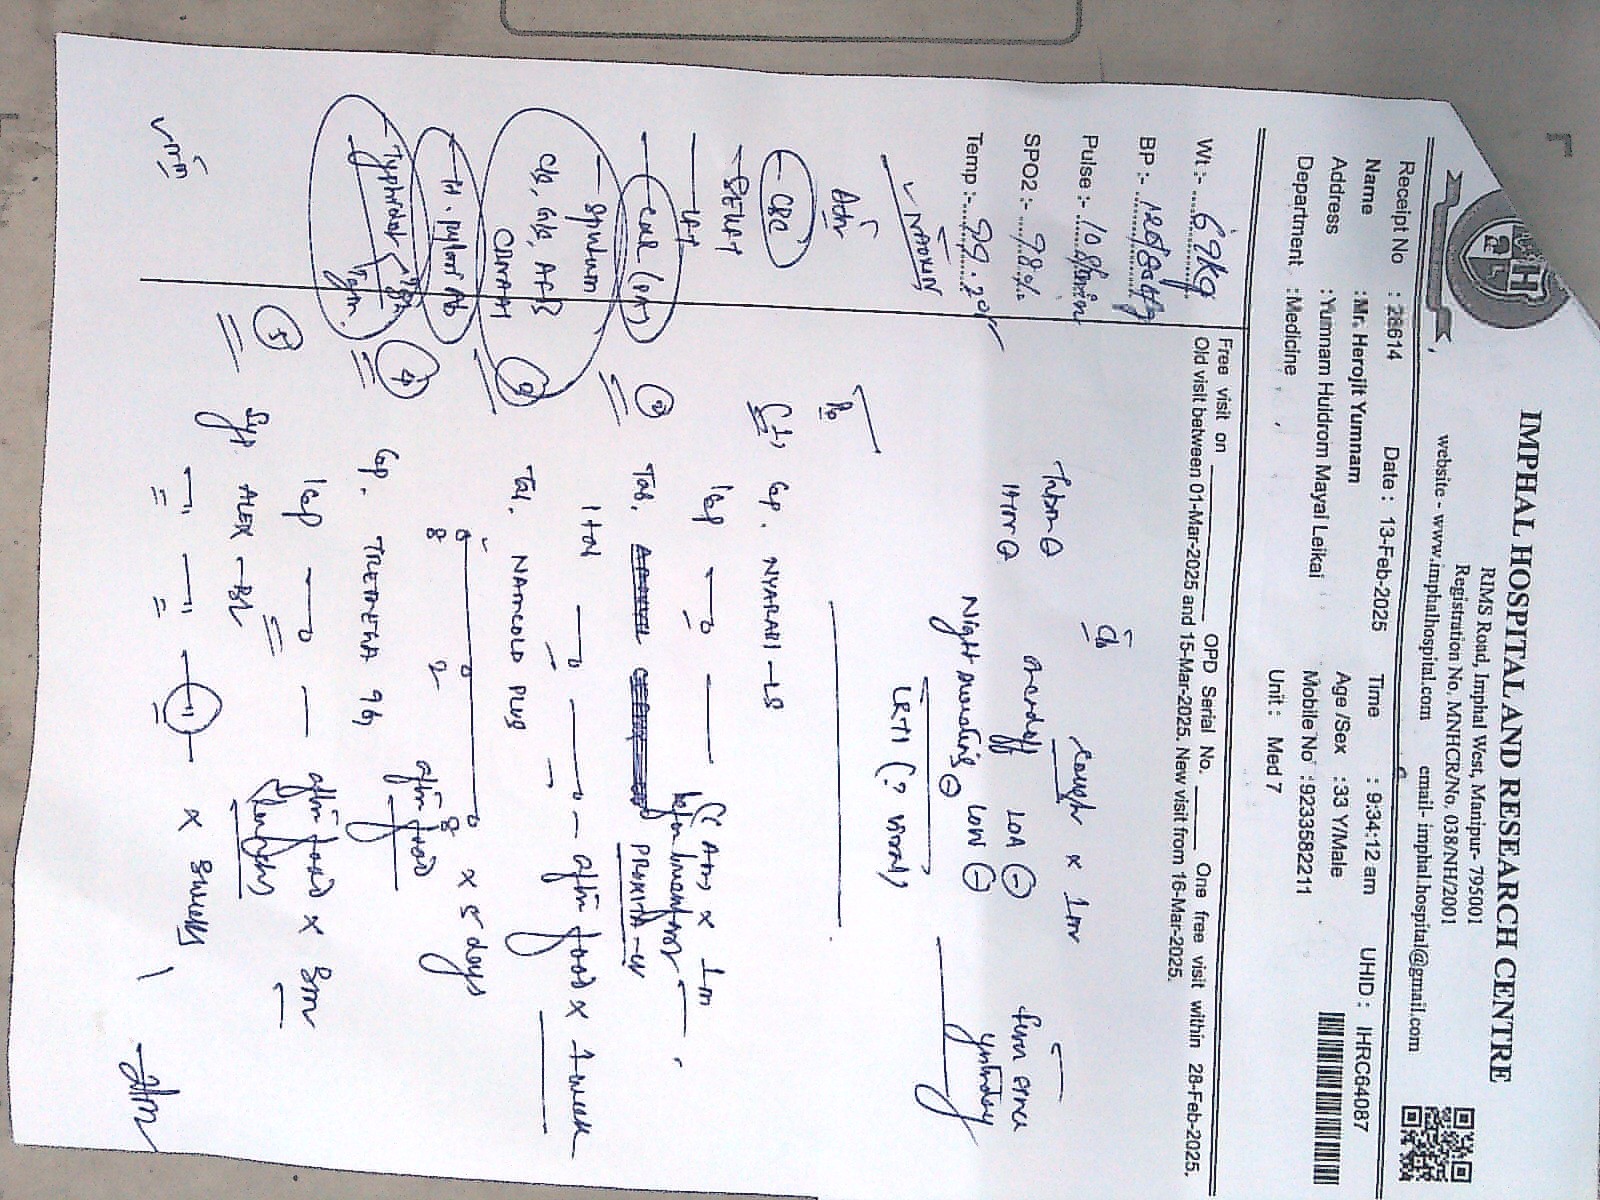 IMPHAL HOSPITAL AND RESEARCH CENTRE
RIMS Road, Imphal West, Manipur- 795001
Registration No. MNHCR/No. 038/NH/2001
website - www.imphalhospital.com email- imphal.hospital@gmail.com
Receipt No : 28614 Date : 13-Feb-2025 Time : 9:34:12 am UHID : IHRC64087
Name : Mr. Herojit Yumnam Age /Sex : 33 Y/Male
Address : Yumnam Huidrom Mayai Leikai Mobile No : 9233582211
Department : Medicine Unit : Med 7
Free visit on OPD Serial No. One free visit within 28-Feb-2025.
Old visit between 01-Mar-2025 and 15-Mar-2025. New visit from 16-Mar-2025.
Wt :- 69kg
BP :- 120/80
Pulse :- 108/min
SPO2 :- 98%
Temp :- 99.2°F
cough x 1m
fever since yesterday
Night sweating ⊖
LOA ⊖
LOW ⊖
LRTI (? viral)
Adv
- CBC
- LFT
- CXR (PA)
- Sputum
C/S, G/S, AFB
CBNAAT
- H. pylori Ab
- Typhidot IgG IgM
Rx
(1) Cap. -LS
1cap x 1m
before breakfast
(2) Tab.
1 tab after food x 1 week
(3) Tab. NAMCOLD PLUS
8 2 8 x 5 days
after food
(4) Cap.
1cap after food x 3m
(5) Syp. ALEX
x 3 weeks